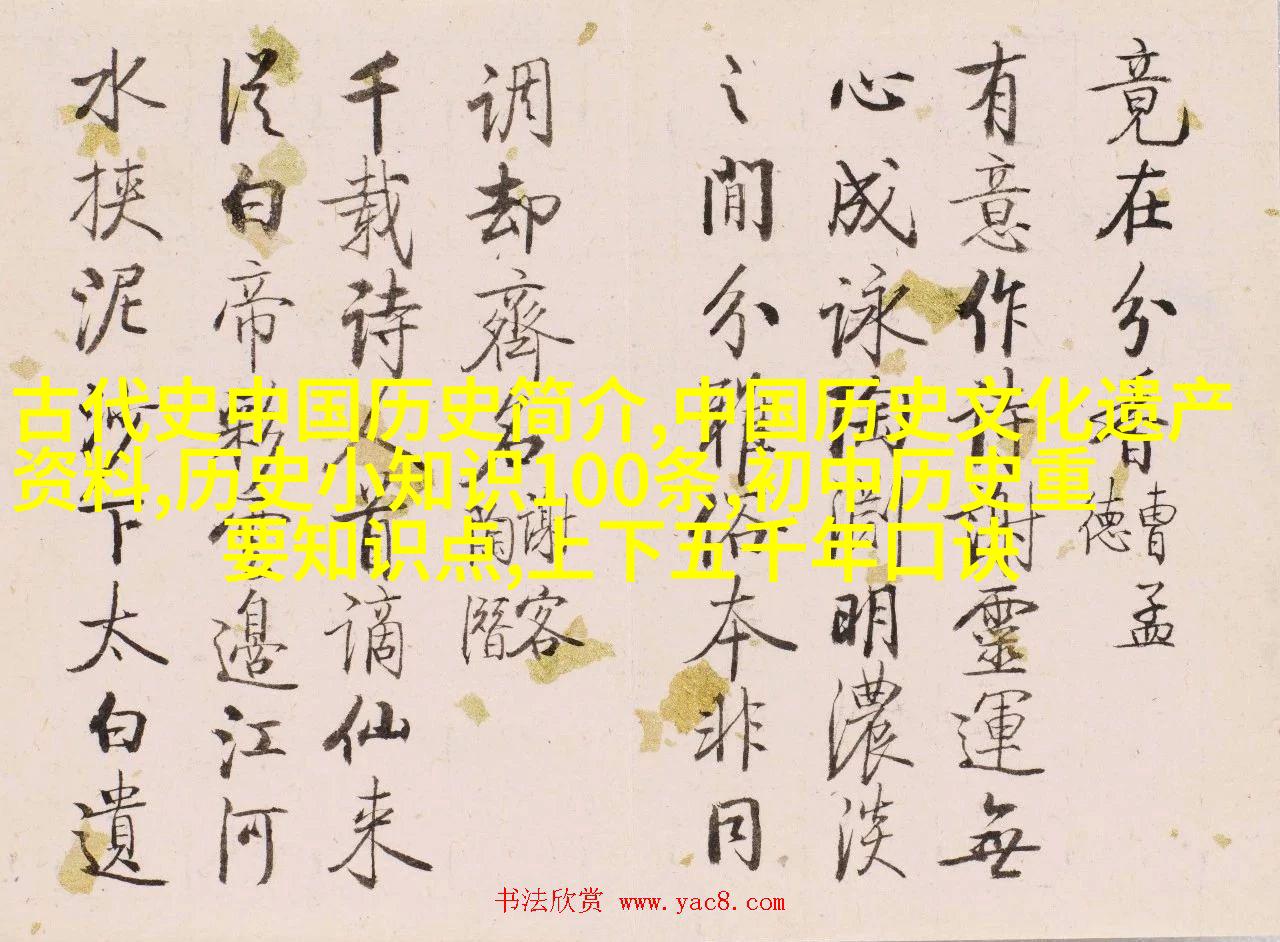 古代史中国历史简介,中国历史文化遗产
资料,历史小知识100条,初中历史重
要知识点,上下五千年口诀
竟在分香曹孟德
有意作詩謝靈運無
心成詠陶淵明濃淡
之間分雅俗本非同
調却齊名謝客陶潛
千載詩人首謫仙来
從白帝彩雲邊江河
水挾泥沙下太白遺
书法欣赏 www.yac8.com